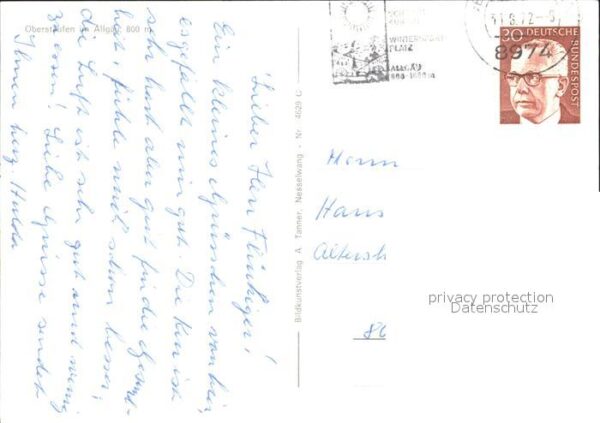 Oberstaufen im Allgäu 800 m
Lieber Herr
Ein kleines Grüsschen von hier,
es gefällt mir gut. Die Kur ist
sehr hart aber gut für die Gesund-
heit, fühle mich schon besser,
die Luft ist sehr gut und wenig
Liebe Grüsse sendet
Ihnen herz. Hulda
Bildkunstverlag A. Tanner, Nesselwang · Nr. 4628 C
WINTERSPORT
PLATZ
8974
30 DEUTSCHE
BUNDESPOST
Herrn
Hans
Altersh
privacy protection
Datenschutz